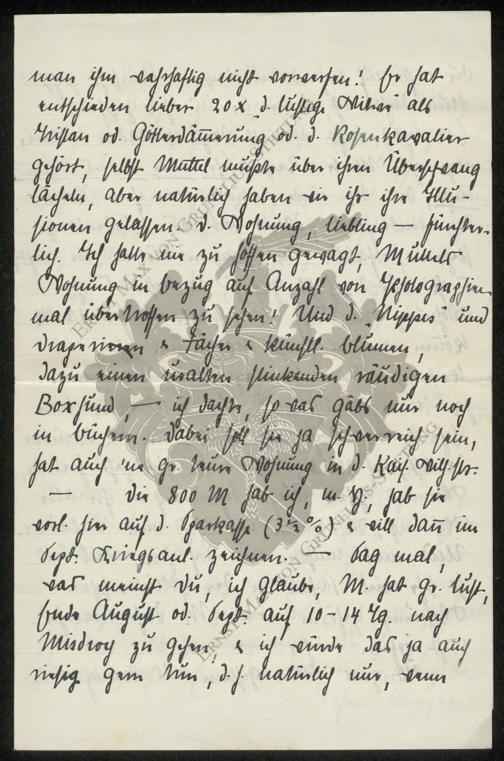 man ihm wahrhaftig nicht vorwerfen! Er hat
entschieden lieber 20 x d. lustige Witwe als
Tristan od. Götterdämerung od. d. Rosenkavalier
gehört, selbst Muttel mußte über ihren Überschwang
lächeln, aber natürlich haben wir ihr ihre Illu-
sionen gelassen. d. Wohnung, Liebling — fürchter-
lich. Ich hatte nie zu hoffen gewagt, Muttels
Wohnung in bezug auf Anzahl von Photographien
mal übertroffen zu sehen! Und d. Nippes und
Draperieen & Fächer & künstl. blumen,
dazu einen uralten stinkenden räudigen
Boxhund, — ich dachte, so was gäbs nur noch
in büchern. Dabei soll sie ja schwerreich sein,
hat auch 'ne gr. teure Wohnung in d. Kais. Wilh.str.
— die 800 M hab ich, m. H., hab sie
vorl. hier auf d. Sparkasse (3½ %) & will dan im
Sept. Kriegsanl. zeichnen. — Sag mal,
was meinst du, ich glaube, M. hat gr. Lust,
Ende August od. Sept. auf 10-14 Tg. nach
Misdroy zu gehen, & ich würde das ja auch
riesig gern tun, d.h. natürlich nur, wenn
Ernst-Max von Grunelius-Stiftung
Ernst-Max von Grunelius-Stiftung